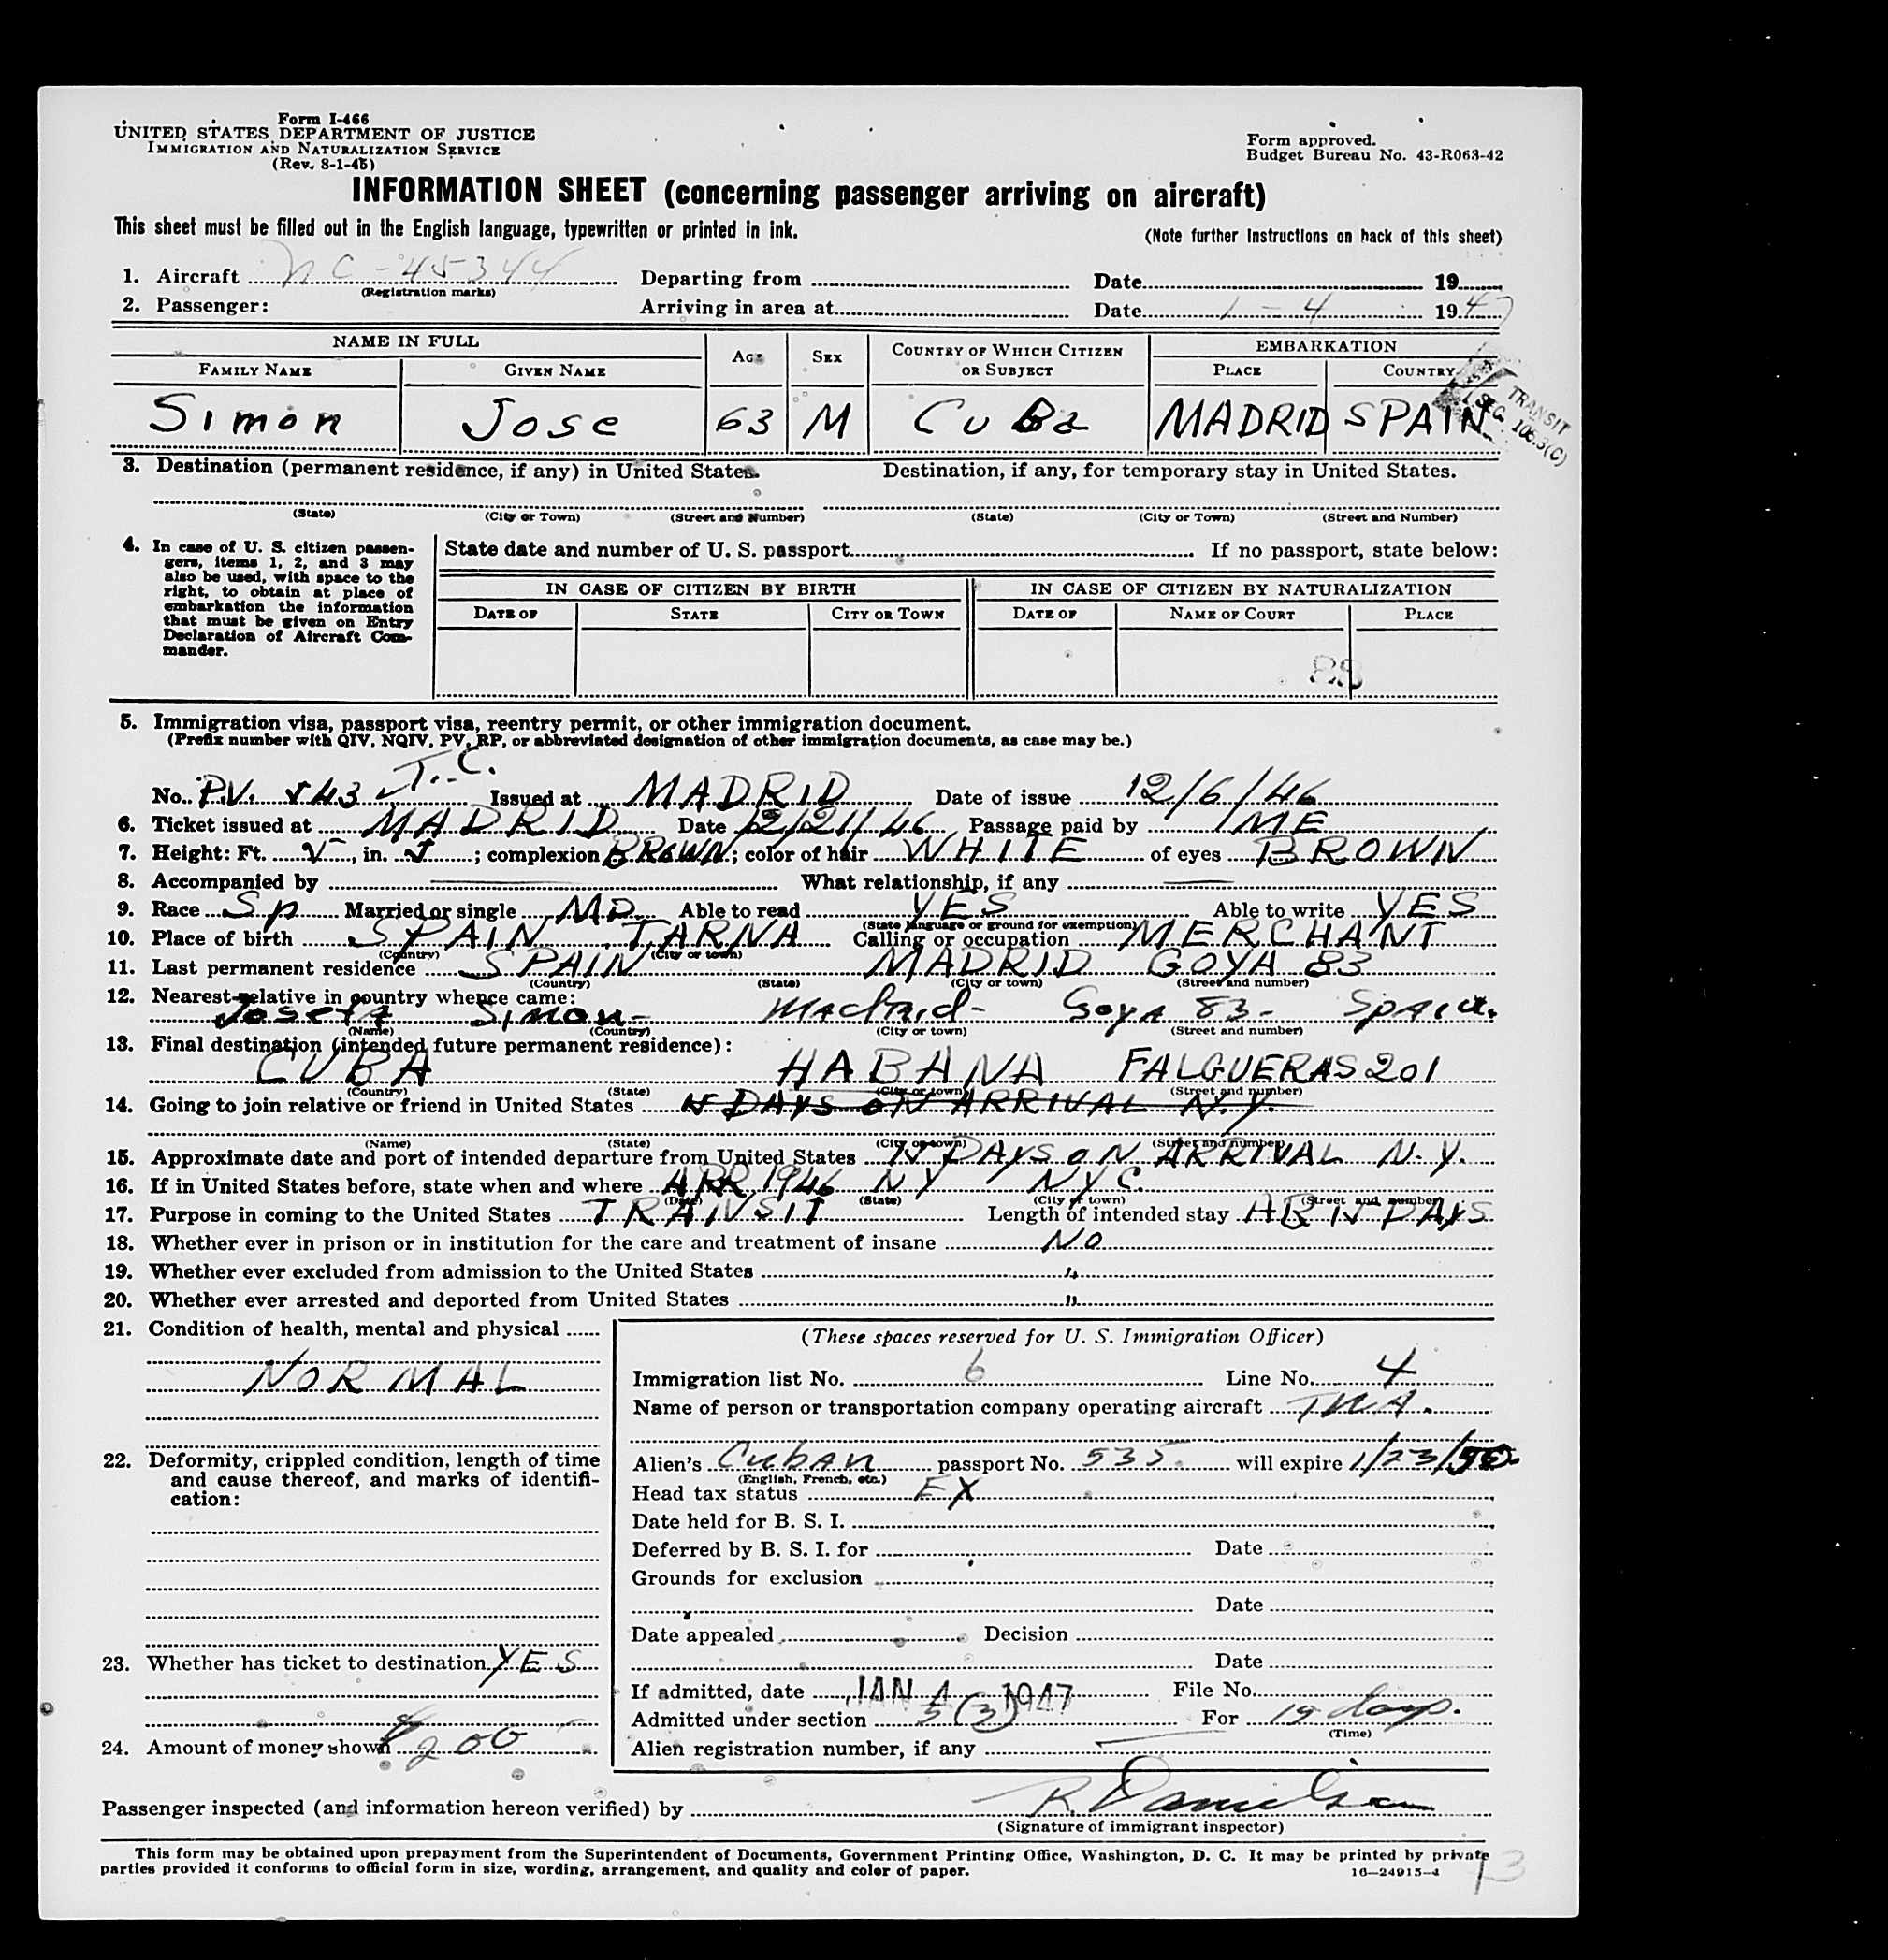 Form I-466
UNITED STATES DEPARTMENT OF JUSTICE
IMMIGRATION AND NATURALIZATION SERVICE
(Rev. 8-1-45)
Form approved.
Budget Bureau No. 43-R063-42
INFORMATION SHEET (concerning passenger arriving on aircraft)
This sheet must be filled out in the English language, typewritten or printed in ink.
(Note further instructions on back of this sheet)
1. Aircraft NC-45344 Departing from Date 19
(Registration marks)
2. Passenger: Arriving in area at Date 1-4 1947
NAME IN FULL AGE SEX COUNTRY OF WHICH CITIZEN OR SUBJECT EMBARKATION
FAMILY NAME GIVEN NAME PLACE COUNTRY
TRANSIT
SEC. 106.3(C)
Simon Jose 63 M CuBa MADRID SPAIN
3. Destination (permanent residence, if any) in United States. Destination, if any, for temporary stay in United States.
(State) (City or Town) (Street and Number) (State) (City or Town) (Street and Number)
4. In case of U. S. citizen passen-
gers, items 1, 2, and 3 may
also be used, with space to the
right, to obtain at place of
embarkation the information
that must be given on Entry
Declaration of Aircraft Com-
mander.
State date and number of U. S. passport If no passport, state below:
IN CASE OF CITIZEN BY BIRTH IN CASE OF CITIZEN BY NATURALIZATION
DATE OF STATE CITY OR TOWN DATE OF NAME OF COURT PLACE
88
5. Immigration visa, passport visa, reentry permit, or other immigration document.
(Prefix number with QIV, NQIV, PV, RP, or abbreviated designation of other immigration documents, as case may be.)
No. P.V. 543 T.C. Issued at MADRID Date of issue 12/6/46
6. Ticket issued at MADRID Date 12/21/46 Passage paid by ME
7. Height: Ft. 5, in. 5; complexion BROWN; color of hair WHITE of eyes BROWN
8. Accompanied by What relationship, if any
9. Race Sp Married or single MD Able to read YES Able to write YES
(State language or ground for exemption)
10. Place of birth SPAIN TARNA Calling or occupation MERCHANT
(Country) (City or town)
11. Last permanent residence SPAIN MADRID GOYA 83
(Country) (State) (City or town) (Street and number)
12. Nearest relative in country whence came:
Josefa Simon- Madrid- Goya 83- Spain.
(Name) (Country) (City or town) (Street and number)
13. Final destination (intended future permanent residence):
CUBA HABANA FALGUERAS 201
(Country) (State) (City or town) (Street and number)
14. Going to join relative or friend in United States 15 DAYS ON ARRIVAL N.Y.
(Name) (State) (City or town) (Street and number)
15. Approximate date and port of intended departure from United States 15 DAYS ON ARRIVAL N.Y.
16. If in United States before, state when and where APR 1946 NY NYC.
(Date) (State) (City or town) (Street and number)
17. Purpose in coming to the United States TRANSIT Length of intended stay AB 15 DAYS
18. Whether ever in prison or in institution for the care and treatment of insane NO
19. Whether ever excluded from admission to the United States "
20. Whether ever arrested and deported from United States "
21. Condition of health, mental and physical
NORMAL
22. Deformity, crippled condition, length of time
and cause thereof, and marks of identifi-
cation:
23. Whether has ticket to destination YES
24. Amount of money shown $200
(These spaces reserved for U. S. Immigration Officer)
Immigration list No. 6 Line No. 4
Name of person or transportation company operating aircraft TWA.
Alien's Cuban passport No. 535 will expire 1/23/50.
(English, French, etc.)
Head tax status EX
Date held for B. S. I.
Deferred by B. S. I. for Date
Grounds for exclusion
Date
Date appealed Decision
Date
If admitted, date JAN 4 1947 File No.
Admitted under section 3(3) For 15 days.
(Time)
Alien registration number, if any
Passenger inspected (and information hereon verified) by R. Danielson
(Signature of immigrant inspector)
This form may be obtained upon prepayment from the Superintendent of Documents, Government Printing Office, Washington, D. C. It may be printed by private
parties provided it conforms to official form in size, wording, arrangement, and quality and color of paper.
16—24915-4
13